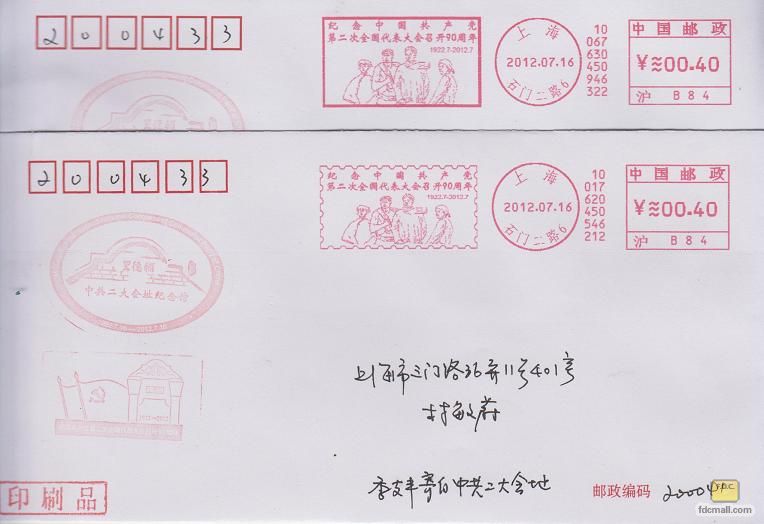 200433
纪念中国共产党
第二次全国代表大会召开90周年
1922.7-2012.7
上海
2012.07.16
石门二路6
10
067
630
450
946
322
中国邮政
¥≈00.40
沪 B84
200433
纪念中国共产党
第二次全国代表大会召开90周年
1922.7-2012.7
上海
2012.07.16
石门二路6
10
017
620
450
546
212
中国邮政
¥≈00.40
沪 B84
辅德里
中共二大会址纪念馆
1922.7.16—2012.7.16
1922-2012
上海市三门路36弄11号401号
李支丰寄自中共二大会址
印刷品
邮政编码 20004
F.D.C
fdcmall.com